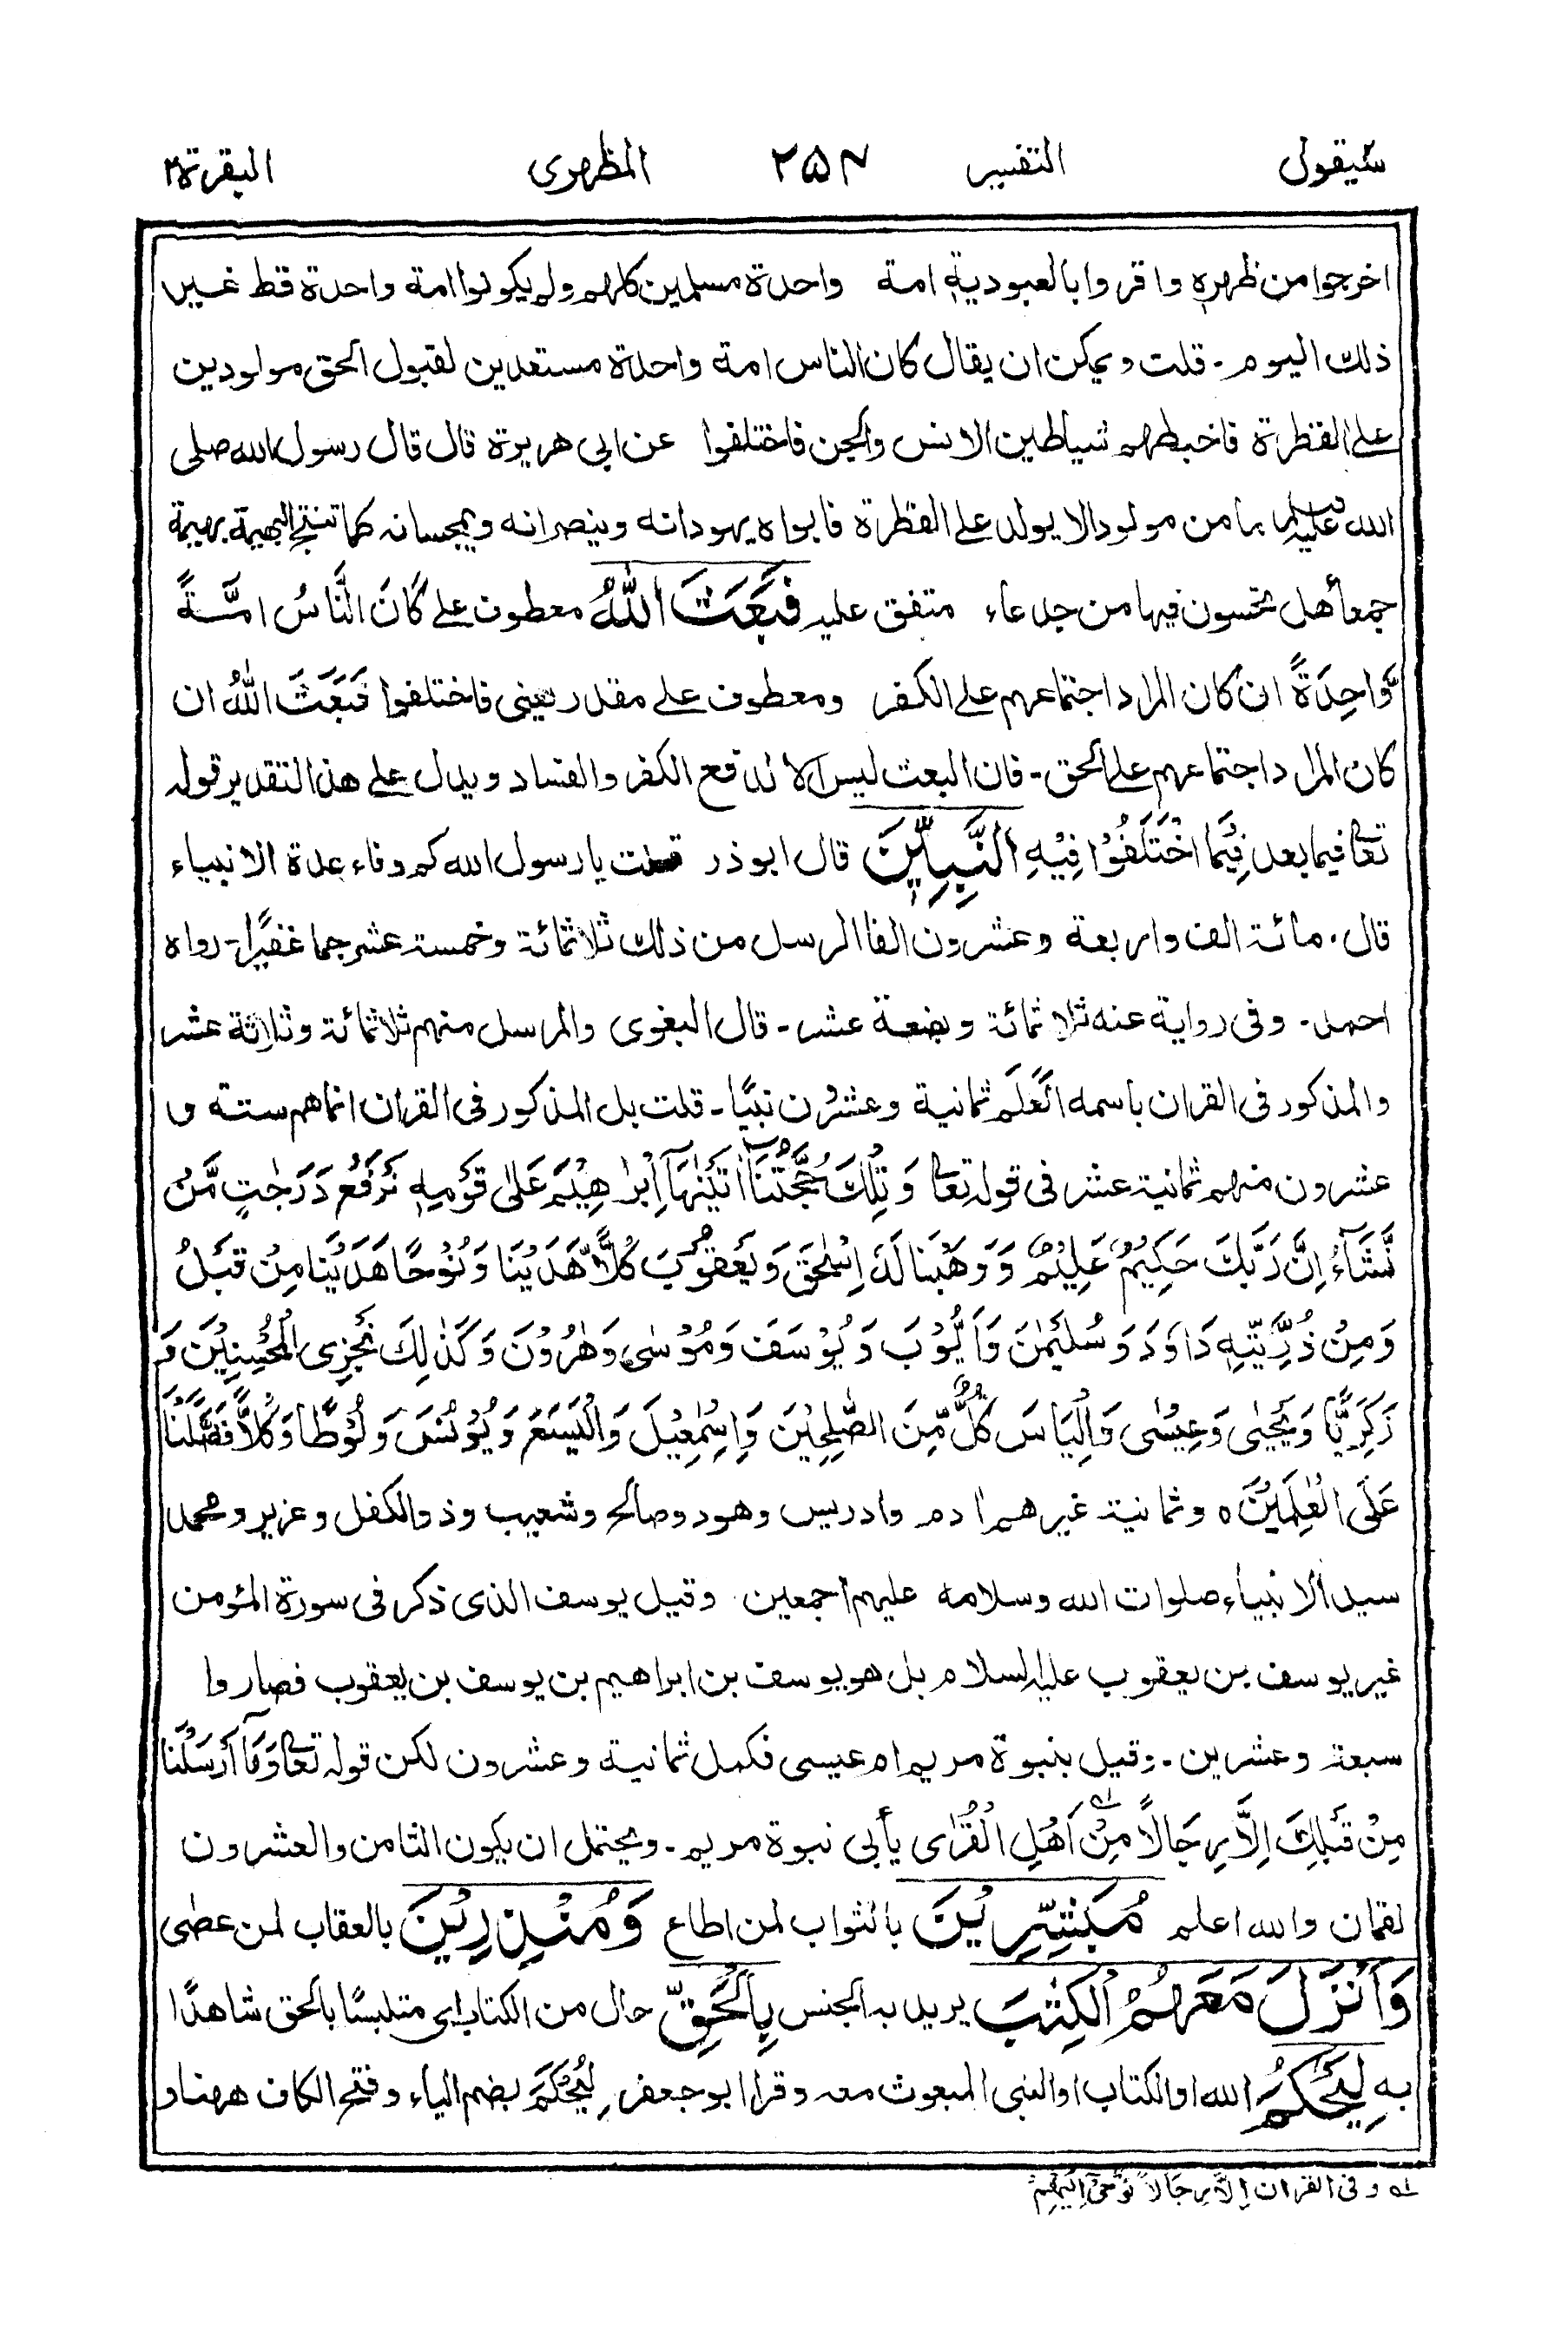 سيقول التفسير ٢٥٤ المظهرى البقرة٢
اخرجوا من ظهره واقروا بالعبودية امة واحدة مسلمين كلهم ولم يكونوا امة واحدة قط غير
ذلك اليوم - قلت ويمكن ان يقال كان الناس امة واحدة مستعدين لقبول الحق مولودين
على الفطرة فاخبطهم شياطين الانس والجن فاختلفوا عن ابى هريرة قال قال رسول الله صلى
الله عليه وسلم ما من مولود الا يولد على الفطرة فابواه يهودانه وينصرانه ويمجسانه كما تنتج البهيمة بهيمة
جمعاً هل تحسون فيها من جدعاء متفق عليه فَبَعَثَ اللّٰهُ معطوف على كَانَ النَّاسُ امَّةً
وَّاحِدَةً ان كان المراد اجتماعهم على الكفر ومعطوف على مقدر يعنى فاختلفوا فَبَعَثَ اللّٰهُ ان
كان المراد اجتماعهم على الحق - فان البعث ليس الا لدفع الكفر والفساد ويدل على هذا التقدير قوله
تعالى فيما بعد فِيْمَا اخْتَلَفُوْا فِيْهِ النَّبِيّٖنَ قال ابو ذر قلت يا رسول الله كم وفاء عدة الانبياء
قال. مائة الف واربعة وعشرون الفا الرسل من ذلك ثلاثمائة وخمسة عشر جما غفيرًا - رواه
احمد - وفى رواية عنه ثلاثمائة وبضعة عشر - قال البغوى والمرسل منهم ثلاثمائة وثلاثة عشر
والمذكور فى القران باسمه الْعَلَم ثمانية وعشرون نبيًّا - قلت بل المذكور فى القران انما هم ستة و
عشرون منهم ثمانية عشر فى قوله تعالى وَتِلْكَ حُجَّتُنَآ اٰتَيْنٰهَآ اِبْرٰهِيْمَ عَلٰى قَوْمِهٖ نَرْفَعُ دَرَجٰتٍ مَّنْ
نَّشَآءُ اِنَّ رَبَّكَ حَكِيْمٌ عَلِيْمٌ وَوَهَبْنَا لَهٗ اِسْحٰقَ وَيَعْقُوْبَ كُلًّا هَدَيْنَا وَنُوْحًا هَدَيْنَا مِنْ قَبْلُ
وَمِنْ ذُرِّيَّتِهٖ دَاوٗدَ وَسُلَيْمٰنَ وَاَيُّوْبَ وَيُوْسُفَ وَمُوْسٰى وَهٰرُوْنَ وَكَذٰلِكَ نَجْزِى الْمُحْسِنِيْنَ وَ
زَكَرِيَّا وَيَحْيٰى وَعِيْسٰى وَاِلْيَاسَ كُلٌّ مِّنَ الصّٰلِحِيْنَ وَاِسْمٰعِيْلَ وَالْيَسَعَ وَيُوْنُسَ وَلُوْطًا وَكُلًّا فَضَّلْنَا
عَلَى الْعٰلَمِيْنَ ٥ وثمانية غيرهم ادم وادريس وهود وصالح وشعيب وذو الكفل وعزير ومحمد
سيد الانبياء صلوات الله وسلامه عليهم اجمعين وقيل يوسف الذى ذكر فى سورة المؤمن
غير يوسف بن يعقوب عليه السلام بل هو يوسف بن ابراهيم بن يوسف بن يعقوب فصاروا
سبعة وعشرين - وقيل بنبوة مريم ام عيسى فكمل ثمانية وعشرون لكن قوله تعالى وَمَآ اَرْسَلْنَا
مِنْ قَبْلِكَ اِلَّا رِجَالًا مِنْ اَهْلِ الْقُرٰى يأبى نبوة مريم - ويحتمل ان يكون الثامن والعشرون
لقمان والله اعلم مُبَشِّرِيْنَ بالثواب لمن اطاع وَمُنْذِرِيْنَ بالعقاب لمن عصٰى
وَاَنْزَلَ مَعَهُمُ الْكِتٰبَ يريد به الجنس بِالْحَقِّ حال من الكتاب اى متلبسًا بالحق شاهدًا
بِهٖ لِيَحْكُمَ الله او الكتاب او النبى المبعوث معه وقرا ابو جعفر لِيُحْكَمَ بضم الياء وفتح الكاف ههنا و
له وفى القران اِلَّا رِجَالًا نُّوْحِىْٓ اِلَيْهِمْ